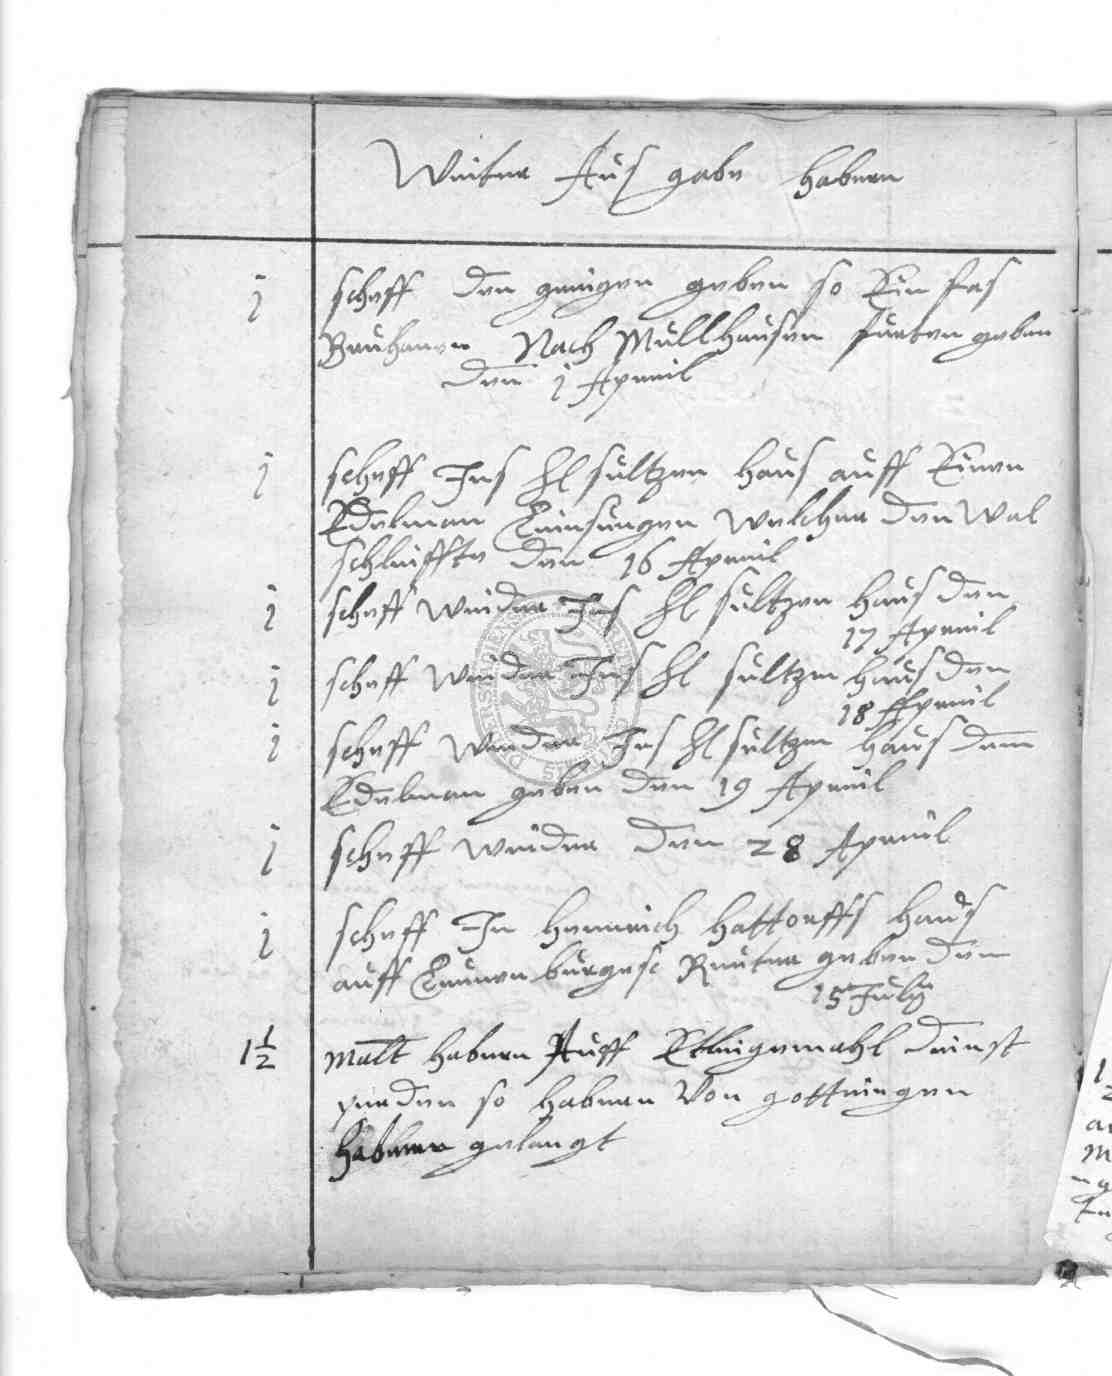 Weiter Aus gabe habern
j scheff den genigen geben so Ein fas
Bruhanen Nach Mullhausen furen geben
den 1 Apreil
j scheff Ins Hl sültzen haus auff Einen
Edelman Luinsungen welcher den Wal
schleiffte den 16 Apreil
j scheff weider Ins Hl sültzen haus den
17 Apreil
j scheff weider Ins Hl sültzen haus den
18 Apreil
j scheff weider Ins Hl sültzen haus dem
Edelman geben den 19 Apreil
j scheff weider den 28 Apreil
j scheff In Henrich Hattorffs haus
auff Luinenburgese Reuter geben den
15 July
1 1/2 malt habern Auff Etleigemahl deinst
perden so habern Von gottningen
habern gelangt